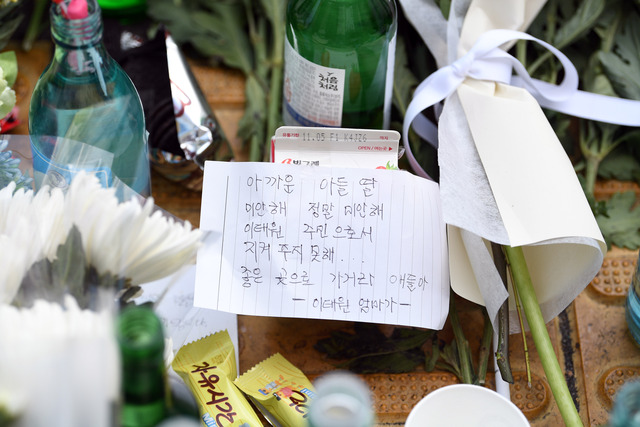 처음
처럼
11.05 F1 K4726
OPEN / 여는곳
빙그레
아까운 아들 딸
미안해 정말 미안해
이태원 주민으로서
지켜 주지 못해...
좋은 곳으로 가거라 얘들아
- 이태원 엄마가 -
자유시간